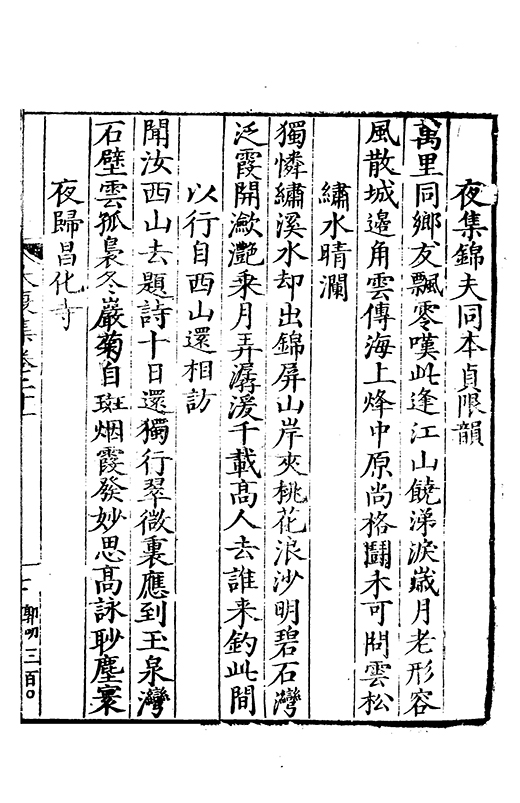 夜集錦夫同本貞限韻
萬里同鄉友飄零嘆此逢江山饒涕淚歲月老形容
風散城邊角雲傳海上烽中原尚格鬪未可問雲松
繡水晴瀾
獨憐繡溪水却出錦屏山岸夾桃花浪沙明碧石灣
泛霞開瀲灔乘月弄潺湲千載高人去誰来釣此間
以行自西山還相訪
聞汝西山去題詩十日還獨行翠微裏應到玉泉灣
石壁雲孤裊冬巖菊自斑烟霞發妙思高詠聊塵寰
夜歸昌化寺
復集卷二十
郭明三百〇